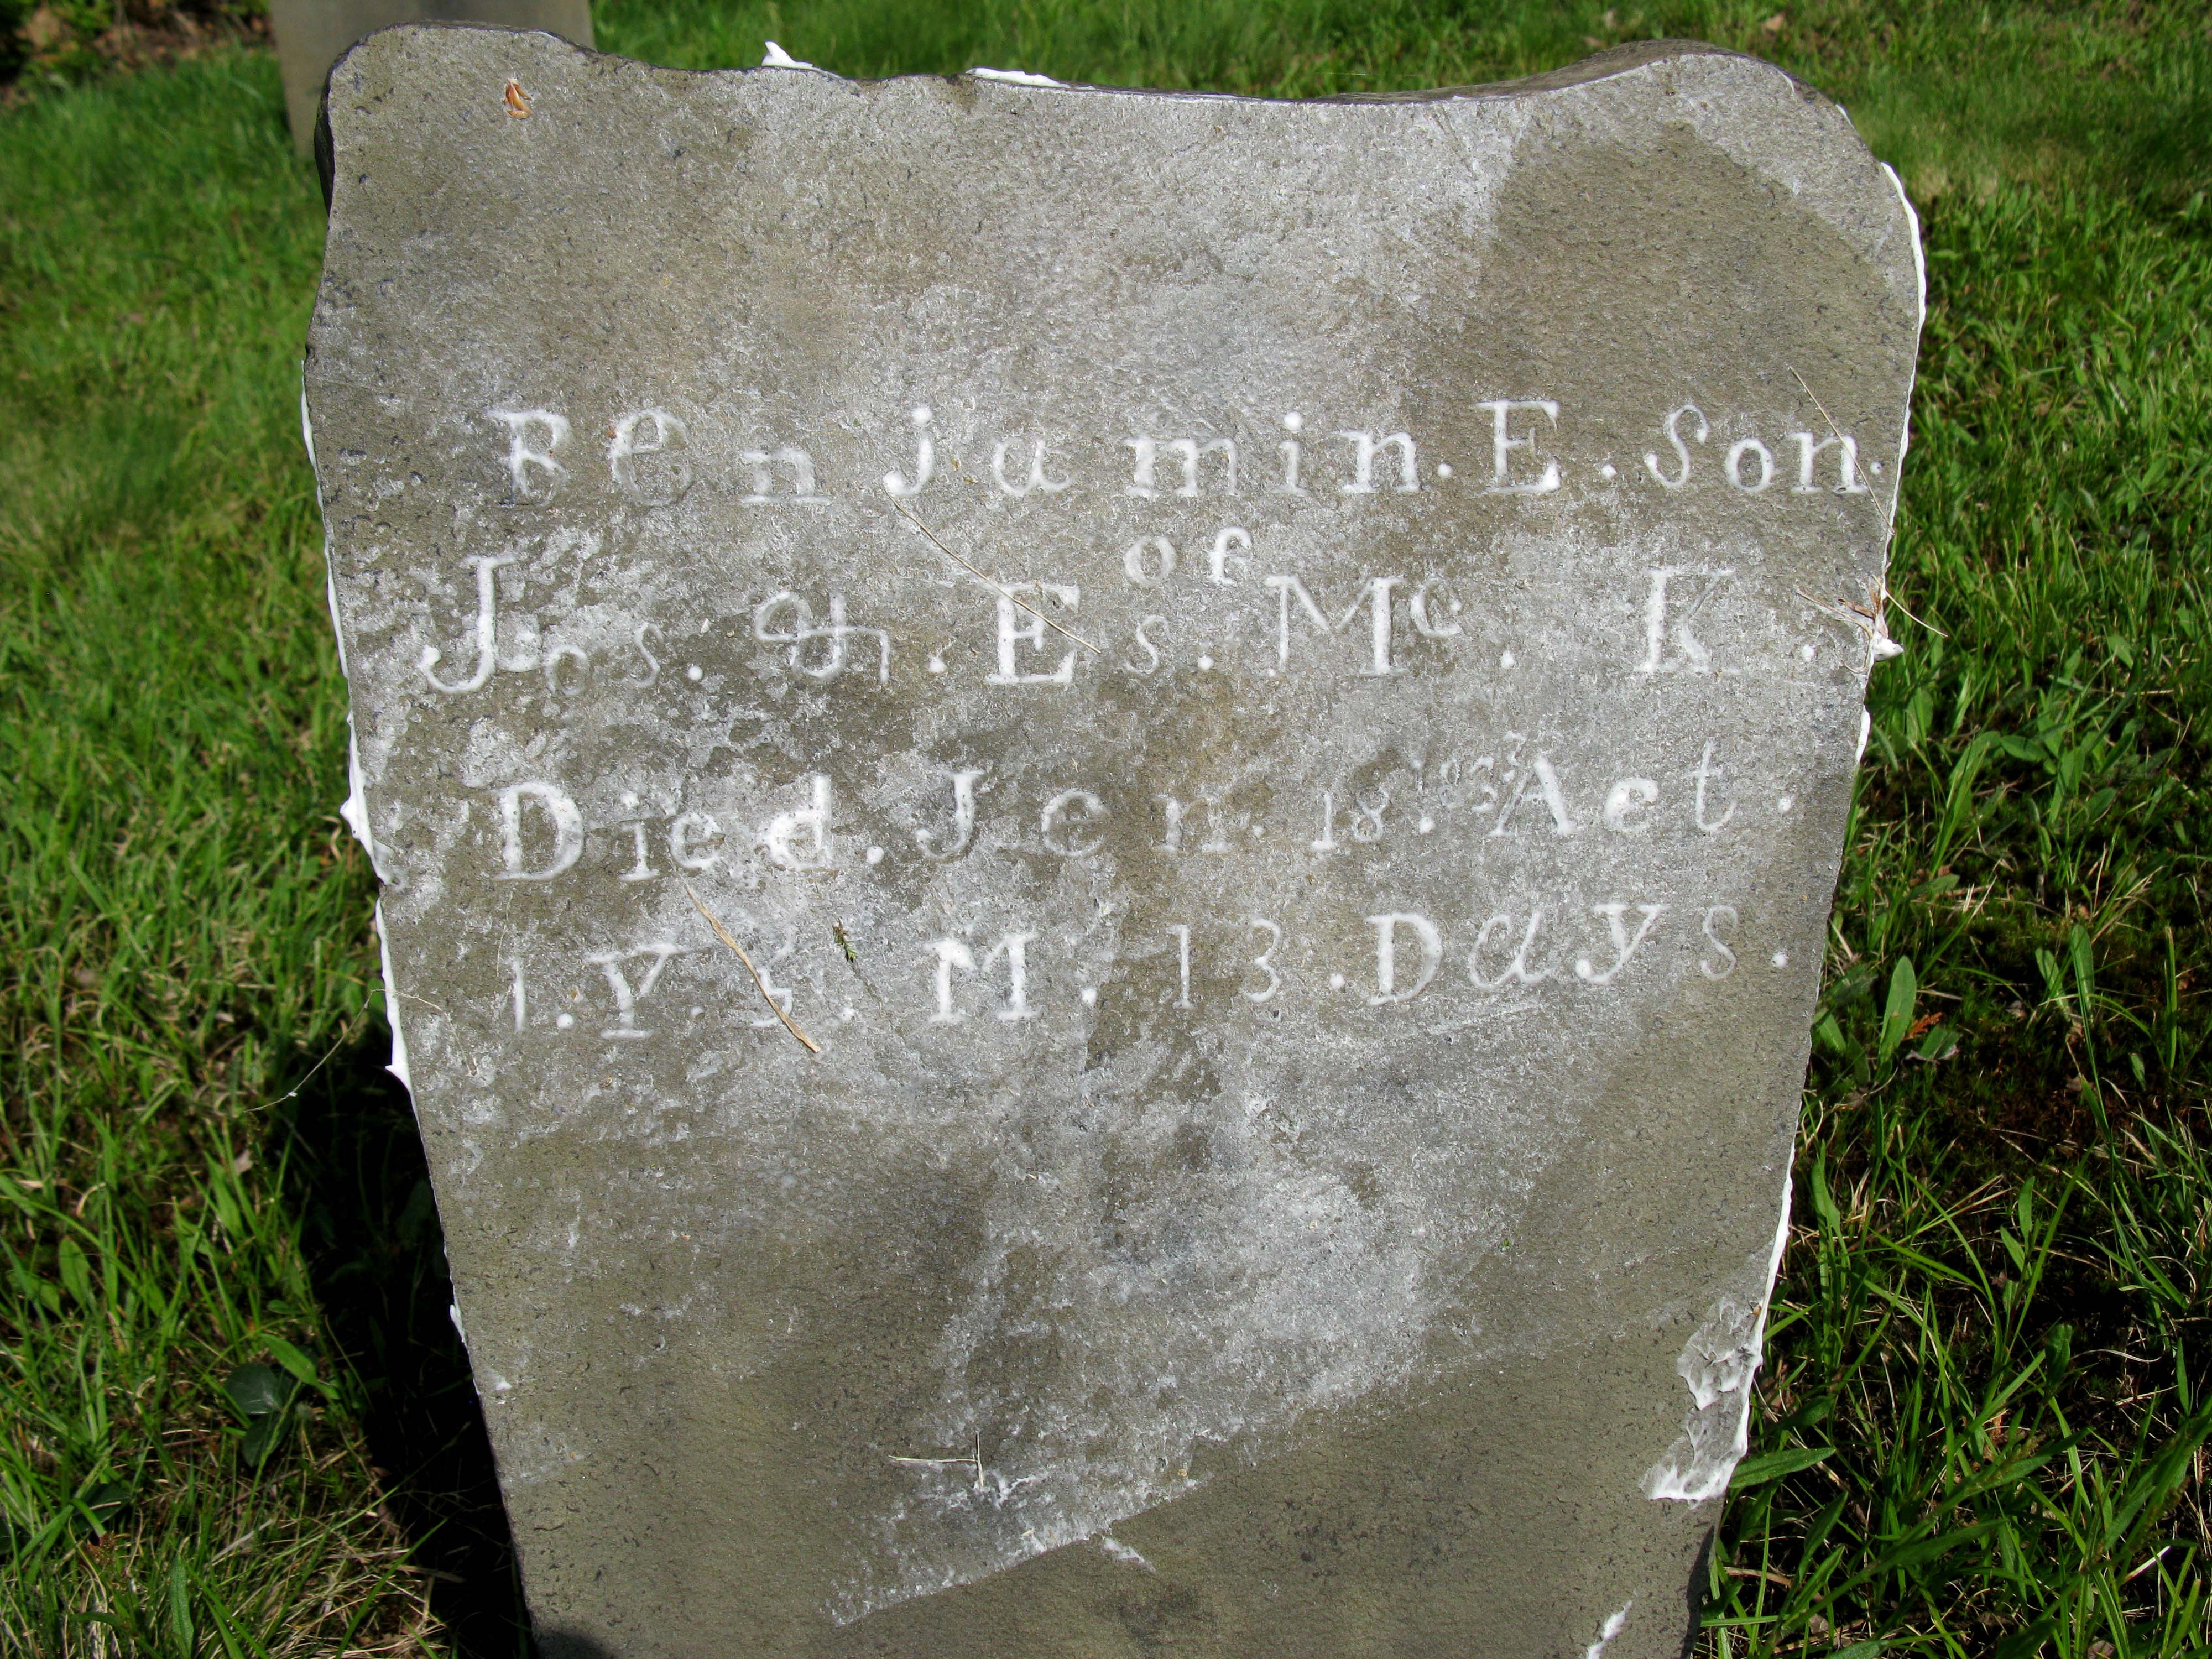 Benjamin. E. Son.
of
Jos. &. Es. Mc. K.
Died. Jen. 18. Aet.
1. Y. 5. M. 13. Days.